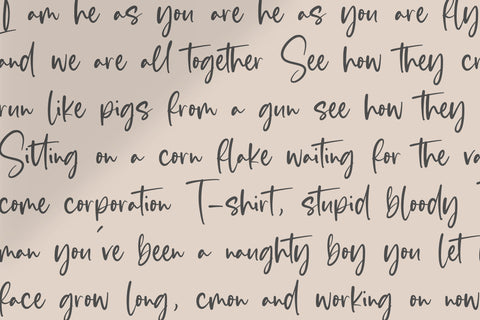 I am he as you are he as you are fly
and we are all together See how they cr
run like pigs from a gun see how they
Sitting on a corn flake waiting for the va
come corporation T-shirt, stupid bloody
man you've been a naughty boy you let
face grow long, cmon and working on now